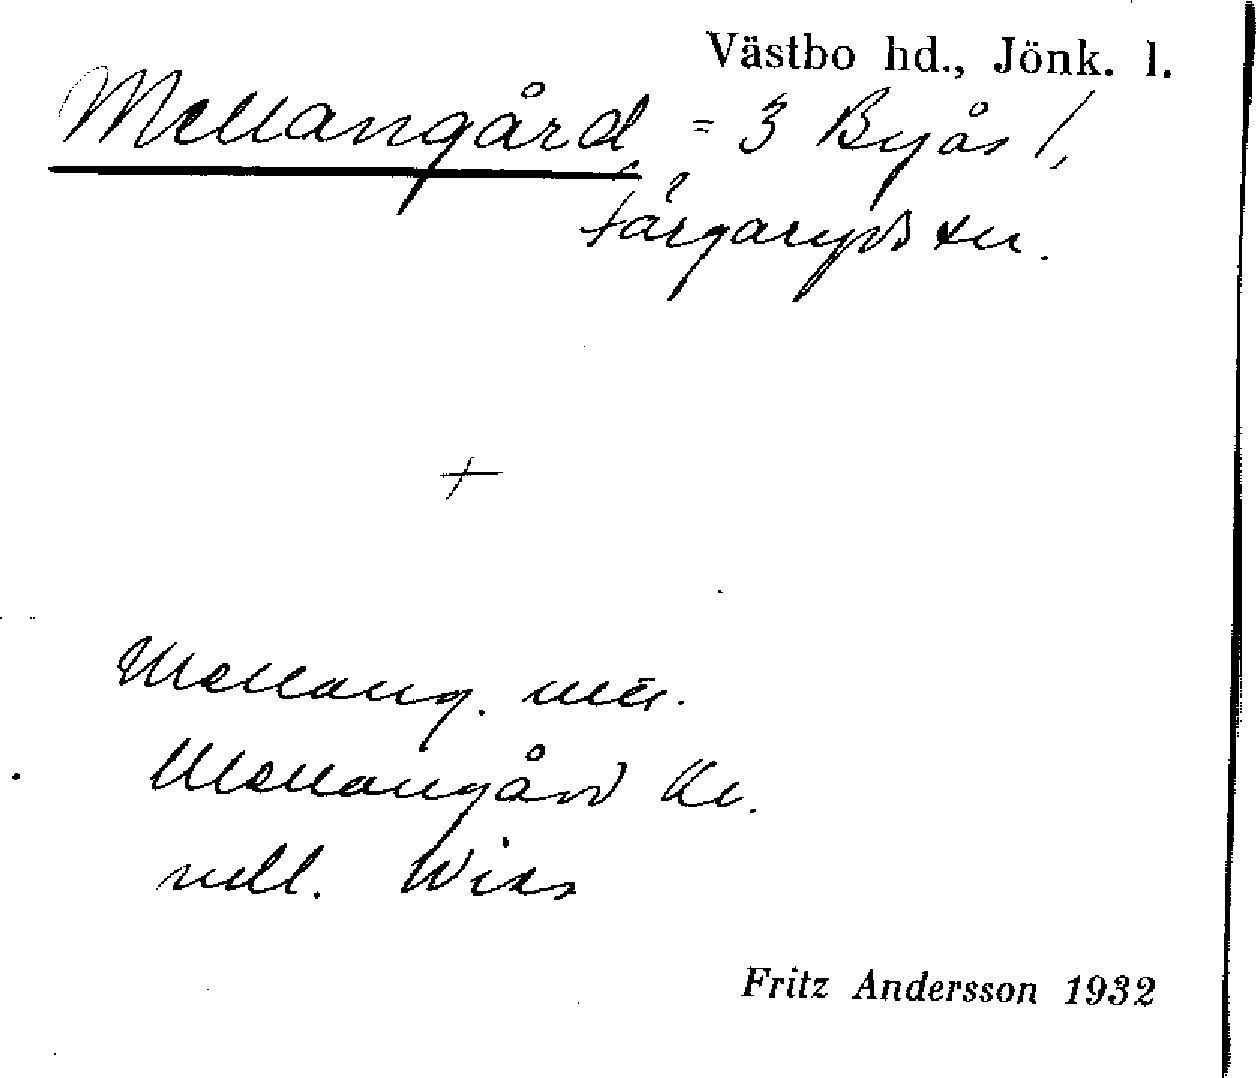 Västbo hd., Jönk. l.
Mellangård = 3 Byås /,
Färgaryds sn.
+
Mellang.
Mellangård
Fritz Andersson 1932